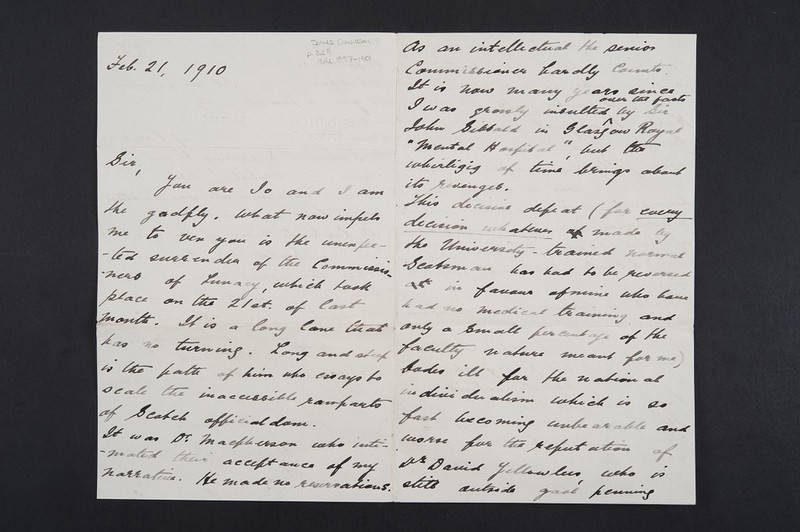 Feb. 21, 1910
Sir,
You are Io and I am
the gadfly. What now impels
me to vex you is the unexpec-
-ted surrender of the Commissio-
-ners of Lunacy, which took
place on the 21st. of last
month. It is a long lane that
has no turning. Long and steep
is the path of him who essays to
scale the inaccessible ramparts
of Scotch officialdom.
It was Dr Macpherson who inti-
-mated their acceptance of my
narrative. He made no reservations.
As an intellectual the senior
Commissioner hardly counts.
It is now many years since
I was grossly insulted over the facts by Sir
John Sibbald in Glasgow Royal
"Mental Hospital", but the
whirligig of time brings about
its revenges.
This decisive defeat (for every
decision whatever made by
the University-trained normal
Scotsman has had to be reversed
in favour of mine who have
had no medical training and
only a small percentage of the
faculty nature meant for me)
bodes ill for the national
individualism which is so
fast becoming unbearable and
worse for the reputation of
Dr David Yellowlees, who is
still outside gaol penning